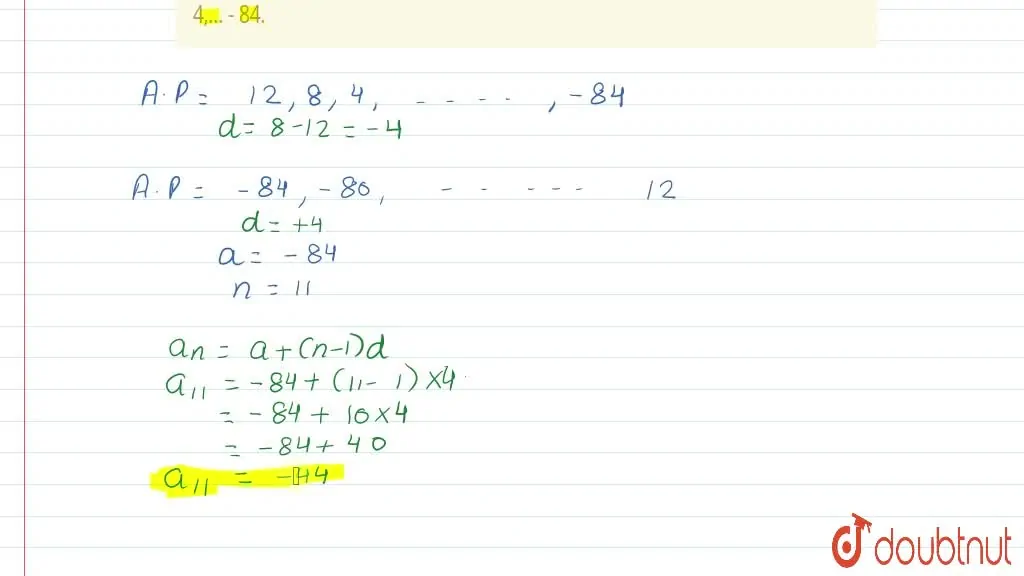 4,... - 84.
A.P = 12, 8, 4, - - - - - , -84
d = 8-12 = -4
A.P = -84, -80, - - - - - 12
d = +4
a = -84
n = 11
an = a+(n-1)d
a11 = -84+(11-1)×4
= -84+10×4
= -84+40
a11 = -44
doubtnut